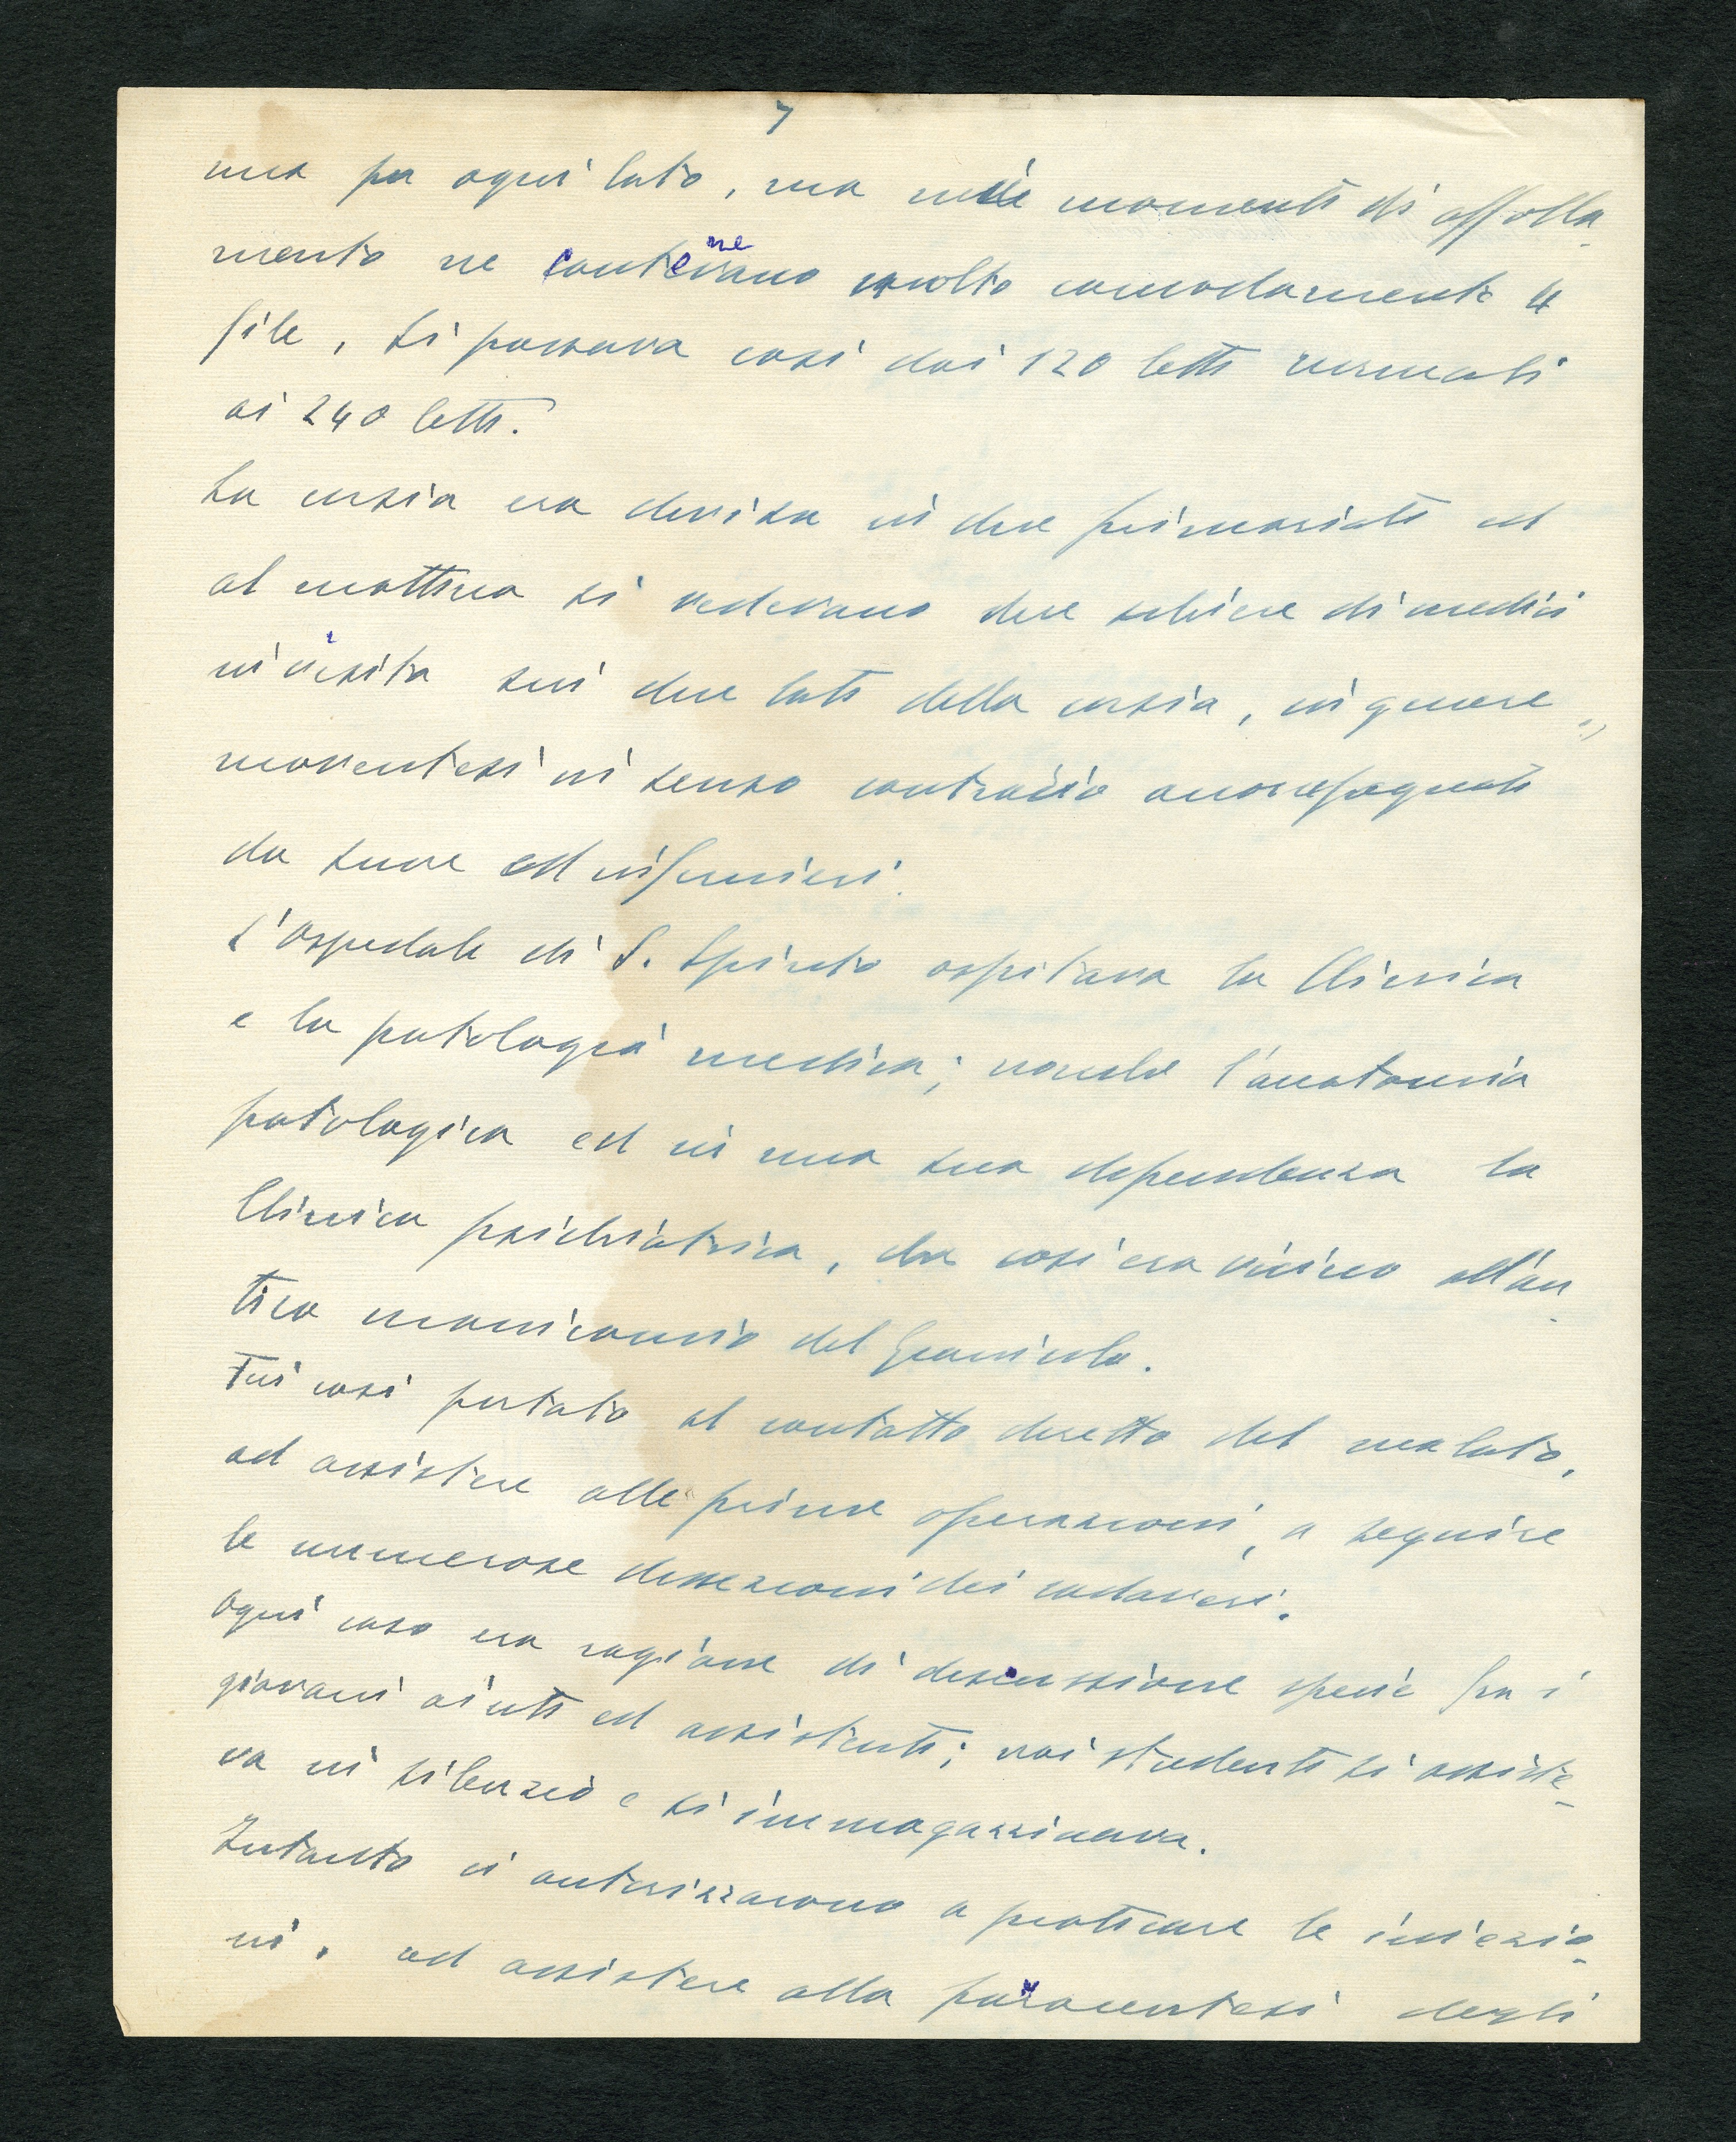 7
una per ogni lato, ma nei momenti di affolla-
mento ne contenevano molto comodamente 4
file, si passava così dai 120 letti normali
ai 240 letti.
La corsia era divisa in due primariati ed
al mattino si vedevano due schiere di medici
in visita sui due lati della corsia, in genere
moventesi in senso contrario accompagnati
da suore ed infermieri.
L'Ospedale di S. Spirito ospitava la Clinica
e la patologia medica; nonché l'anatomia
patologica ed in una sua dependenza la
Clinica psichiatrica, che così era vicino all'an-
tico manicomio del Gianicolo.
Fui così portato al contatto diretto del malato,
ad assistere alle prime operazioni, a seguire
le numerose dissezioni dei cadaveri.
Ogni caso era ragione di discussione specie fra i
giovani aiuti ed assistenti; noi studenti si assiste-
va in silenzio e si immagazzinava.
Intanto ci autorizzarono a praticare le iniezio-
ni, ad assistere alla paracentesi degli